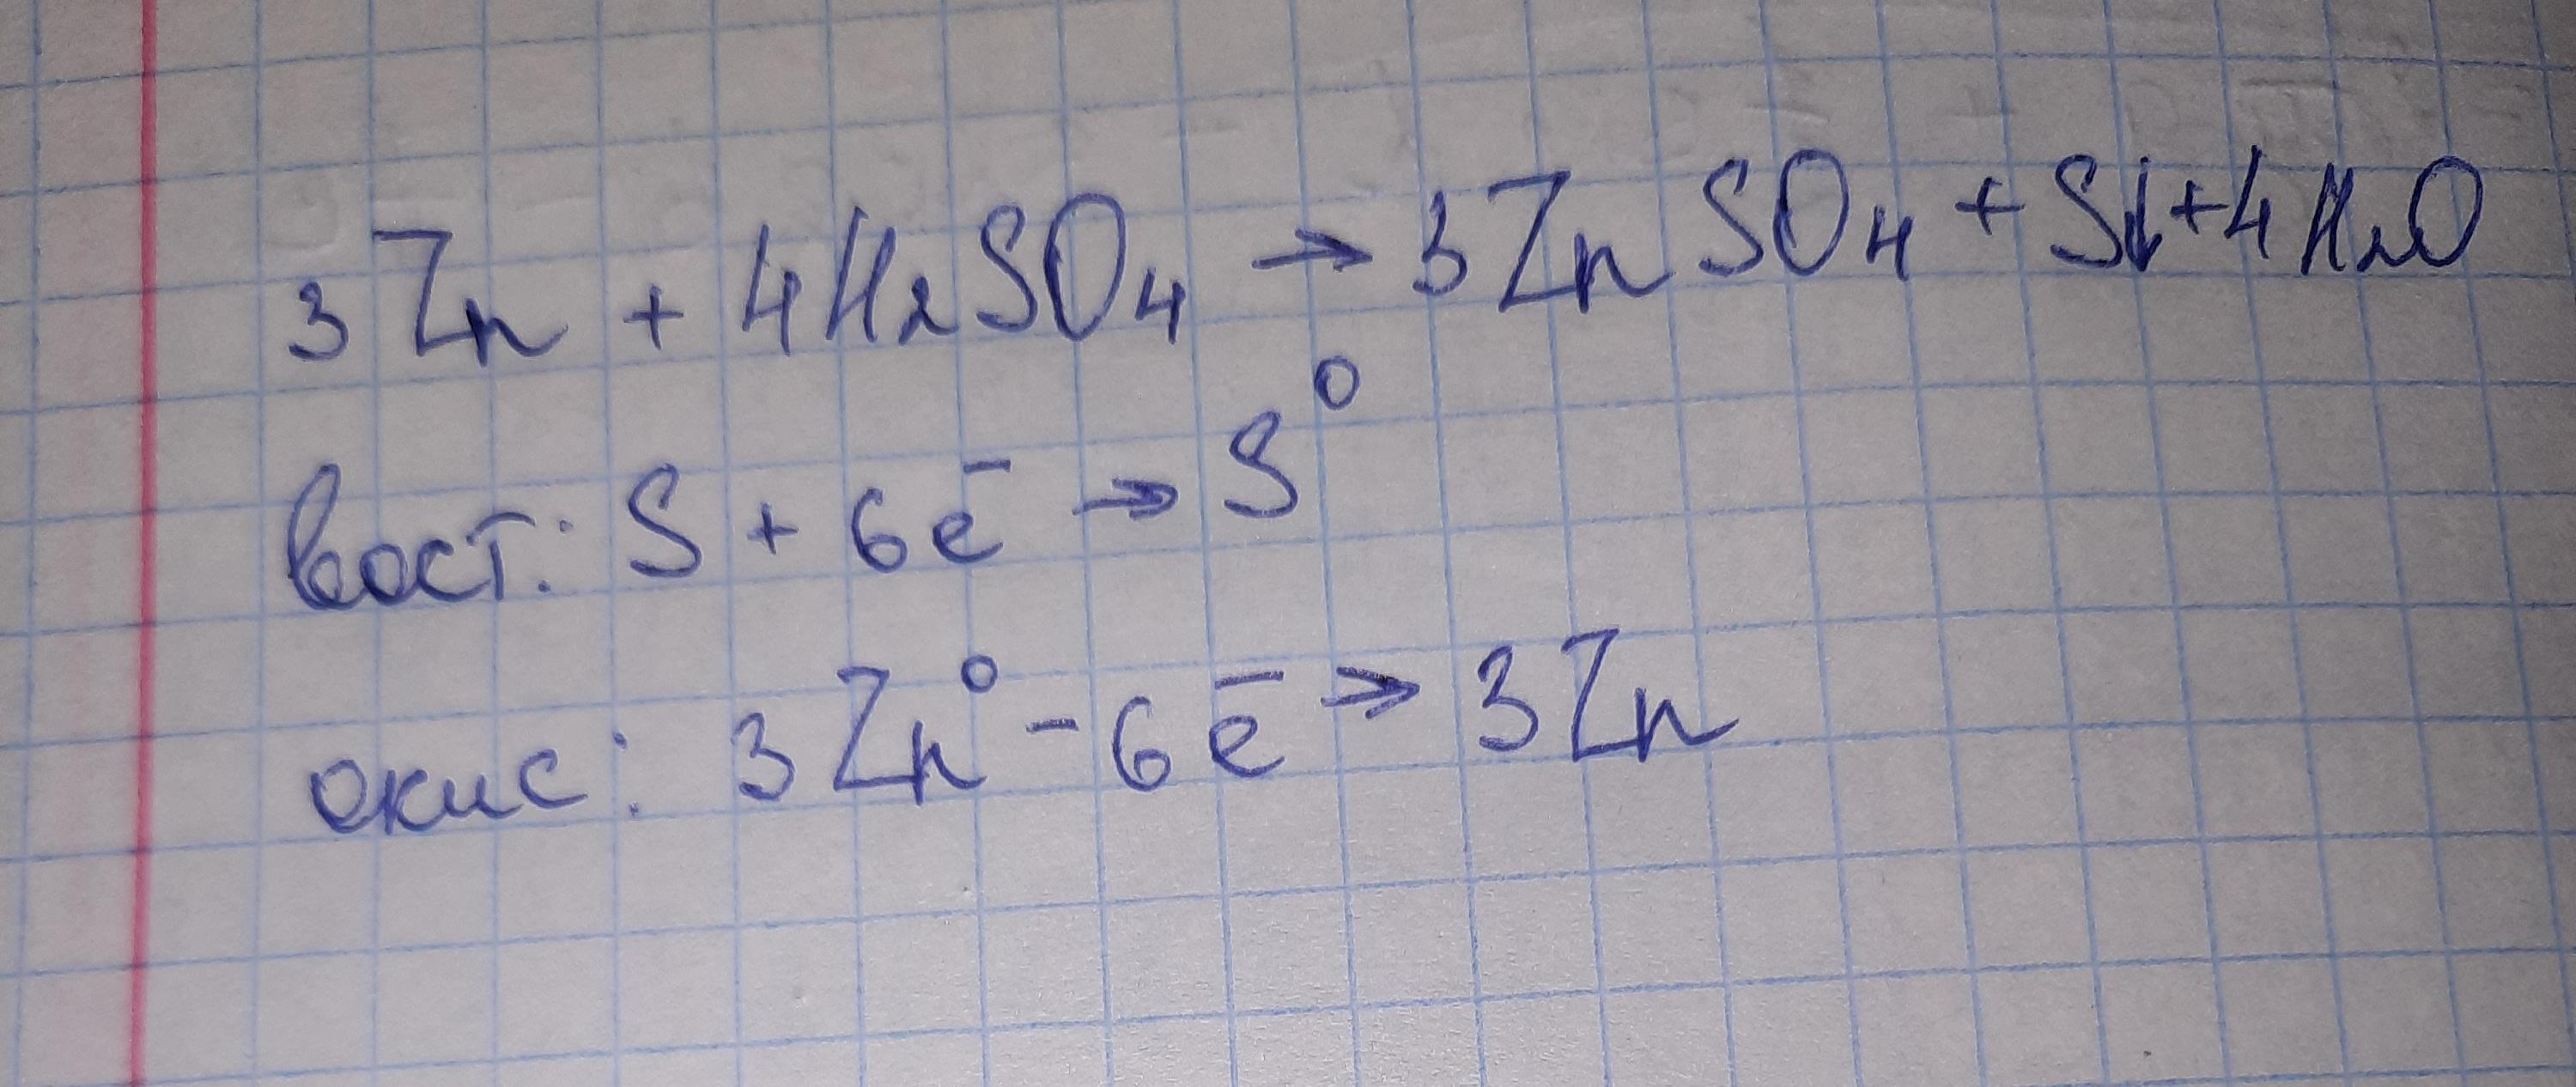 3Zn + 4H₂SO₄ → 3ZnSO₄ + S↓ + 4H₂O
вост: S + 6e̅ → S⁰
окис: 3Zn⁰ - 6e̅ → 3Zn